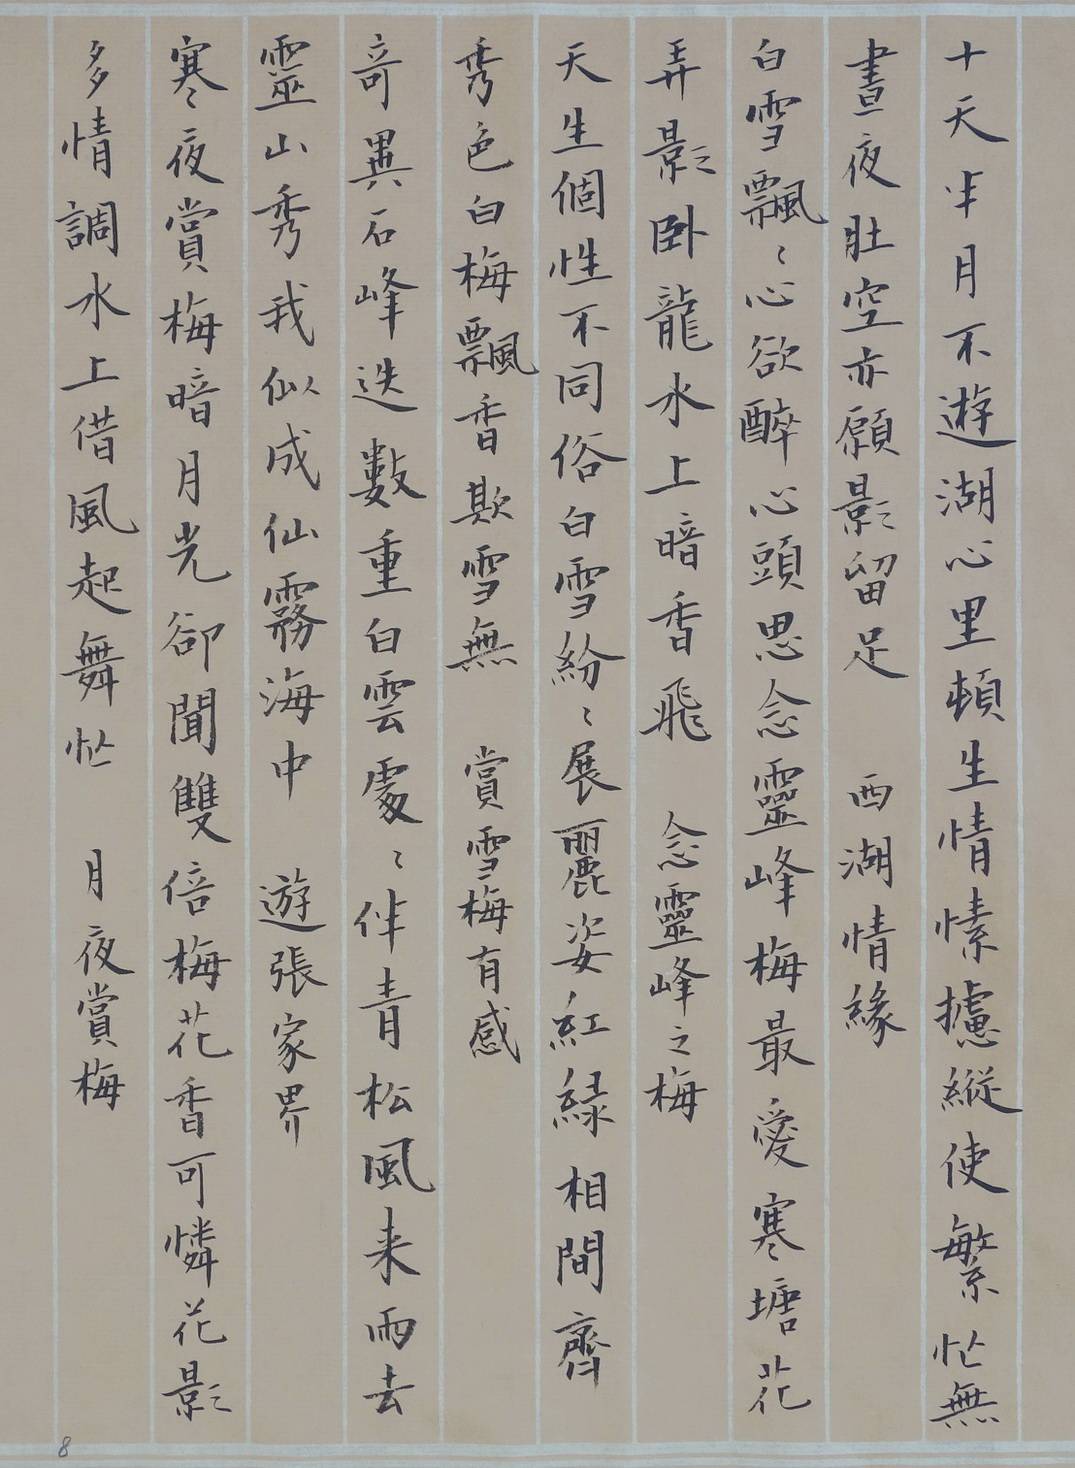 十天半月不遊湖心里頓生情愫攄縱使繁忙無
晝夜肚空亦願影留足 西湖情緣
白雪飄〻心欲醉心頭思念靈峰梅最愛寒塘花
弄影卧龍水上暗香飛 念靈峰之梅
天生個性不同俗白雪紛〻展麗姿紅緑相間齊
秀色白梅飄香欺雪無 賞雪梅有感
奇異石峰迭數重白雲處〻伴青松風来雨去
靈山秀我似成仙霧海中 遊張家界
寒夜賞梅暗月光卻聞雙倍梅花香可憐花影
多情調水上借風起舞忙 月夜賞梅
8